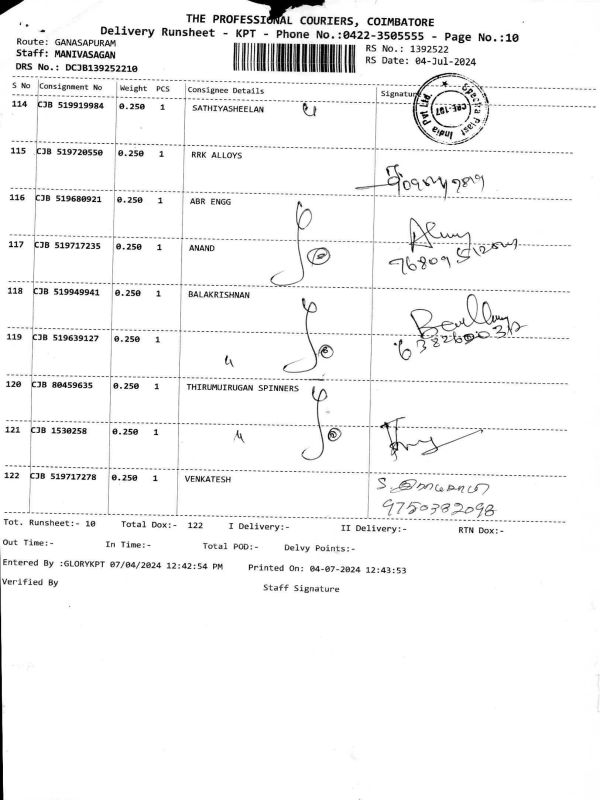 THE PROFESSIONAL COURIERS, COIMBATORE
Delivery Runsheet - KPT - Phone No.:0422-3505555 - Page No.:10
Route: GANASAPURAM
RS No.: 1392522
Staff: MANIVASAGAN
RS Date: 04-Jul-2024
DRS No.: DCJB139252210
S No Consignment No Weight PCS Consignee Details Signature
114 CJB 519919984 0.250 1 SATHIYASHEELAN
115 CJB 519720550 0.250 1 RRK ALLOYS
116 CJB 519680921 0.250 1 ABR ENGG
117 CJB 519717235 0.250 1 ANAND
118 CJB 519949941 0.250 1 BALAKRISHNAN
119 CJB 519639127 0.250 1
120 CJB 80459635 0.250 1 THIRUMUIRUGAN SPINNERS
121 CJB 1530258 0.250 1
122 CJB 519717278 0.250 1 VENKATESH
9750382098
Tot. Runsheet:- 10 Total Dox:- 122 I Delivery:- II Delivery:- RTN Dox:-
Out Time:- In Time:- Total POD:- Delvy Points:-
Entered By :GLORYKPT 07/04/2024 12:42:54 PM Printed On: 04-07-2024 12:43:53
Verified By Staff Signature